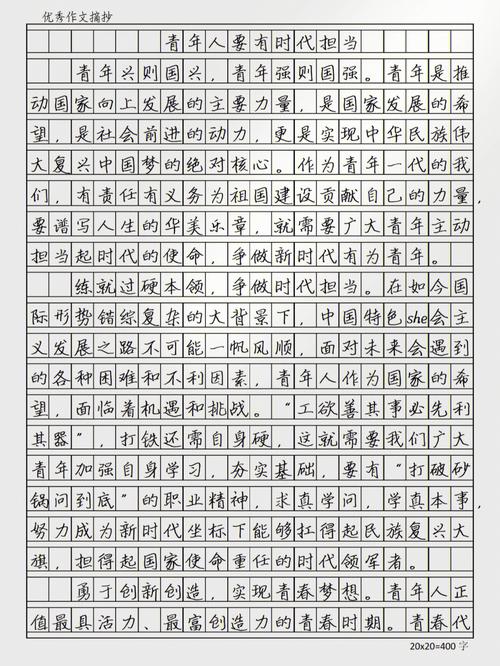 优秀作文摘抄
青年人要有时代担当
青年兴则国兴，青年强则国强。青年是推
动国家向上发展的主要力量，是国家发展的希
望，是社会前进的动力，更是实现中华民族伟
大复兴中国梦的绝对核心。作为青年一代的我
们，有责任有义务为祖国建设贡献自己的力量，
要谱写人生的华美乐章，就需要广大青年主动
担当起时代的使命，争做新时代有为青年。
练就过硬本领，争做时代担当。在如今国
际形势错综复杂的大背景下，中国特色she会主
义发展之路不可能一帆风顺，面对未来会遇到
的各种困难和不利因素，青年人作为国家的希
望，面临着机遇和挑战。“工欲善其事必先利
其器”，打铁还需自身硬，这就需要我们广大
青年加强自身学习，夯实基础，要有“打破砂
锅问到底”的职业精神，求真学问，学真本事，
努力成为新时代坐标下能够扛得起民族复兴大
旗，担得起国家使命重任的时代领军者。
勇于创新创造，实现青春梦想。青年人正
值最具活力、最富创造力的青春时期。青春代
20x20=400 字